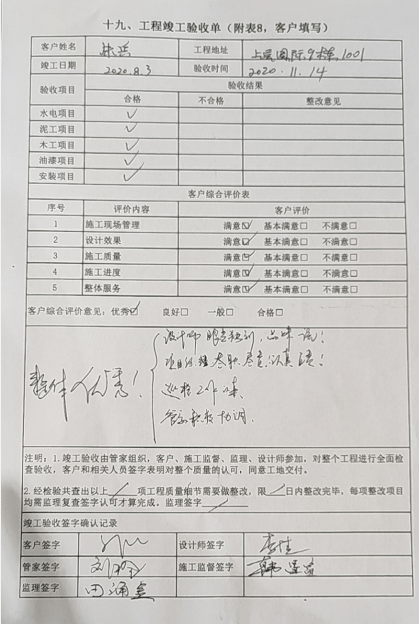 十九、工程竣工验收单（附表8，客户填写）
客户姓名 工程地址 国际9栋1001
竣工日期 2020.8.3 验收时间 2020.11.14
验收项目 验收结果
合格 不合格 整改意见
水电项目 ✓
泥工项目 ✓
木工项目 ✓
油漆项目 ✓
安装项目 ✓
客户综合评价表
序号 评价内容 客户评价
1 施工现场管理 满意☑ 基本满意□ 不满意□
2 设计效果 满意☑ 基本满意□ 不满意□
3 施工质量 满意☑ 基本满意□ 不满意□
4 施工进度 满意☑ 基本满意□ 不满意□
5 整体服务 满意☑ 基本满意□ 不满意□
客户综合评价意见：优秀☑ 良好□ 一般□ 合格□
设计师眼光独到，品味
项目经理尽职尽责，认真
整体优秀！
巡检工作
管家积极协调。
注明：1.竣工验收由管家组织，客户、施工监督、监理、设计师参加，对整个工程进行全面检
查验收，客户和相关人员签字表明对整个质量的认可，同意工地交付。
2.经检验共查出以上 项工程质量细节需要做整改，限 日内整改完毕，每项整改项目
均需监理复查签字认可才算完成，监理签字
竣工验收签字确认记录
客户签字 设计师签字 李佳
管家签字 刘 施工监督签字 韩
监理签字 田涌金